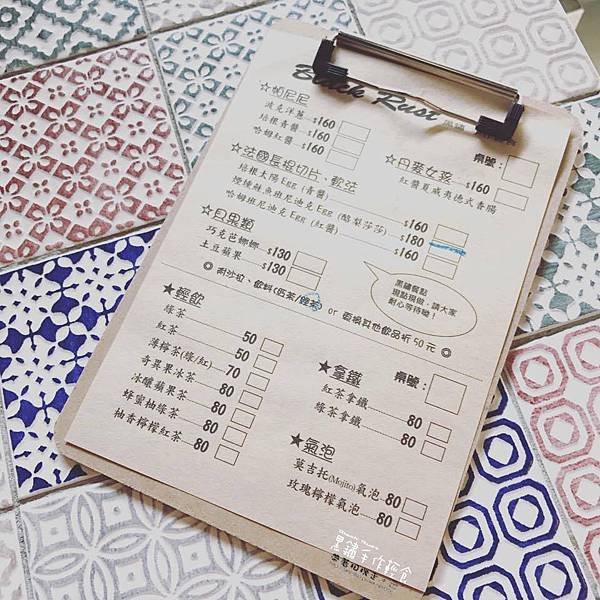 Black Rust
☆帕尼尼
波克洋蔥 $160
培根青醬 $160
哈姆紅醬 $160
桌號:
☆丹麥女孩
紅醬夏威夷德式香腸 $160
☆法國長棍切片、軟法
培根太陽Egg(青醬) $160
煙燻鮭魚班尼迪克Egg(酪梨莎莎) $180
哈姆班尼迪克Egg(紅醬) $160
☆貝果類
巧克芭娜娜 $130
土豆蘋果 $130
黑鏽餐點
現點現做,請大家
耐心等待呦!
◎ 附沙拉、飲料(奶茶/綠茶) or 更換其他飲品折50元 ◎
★輕飲
綠茶 50
紅茶 50
薄檸茶(綠/紅) 70
奇異果冰茶 80
冰釀蘋果茶 80
蜂蜜柚綠茶 80
柚香檸檬紅茶 80
★拿鐵
桌號:
紅茶拿鐵 80
綠茶拿鐵 80
★氣泡
莫吉托(Mojito)氣泡 80
玫瑰檸檬氣泡 80
黑鏽手作輕食